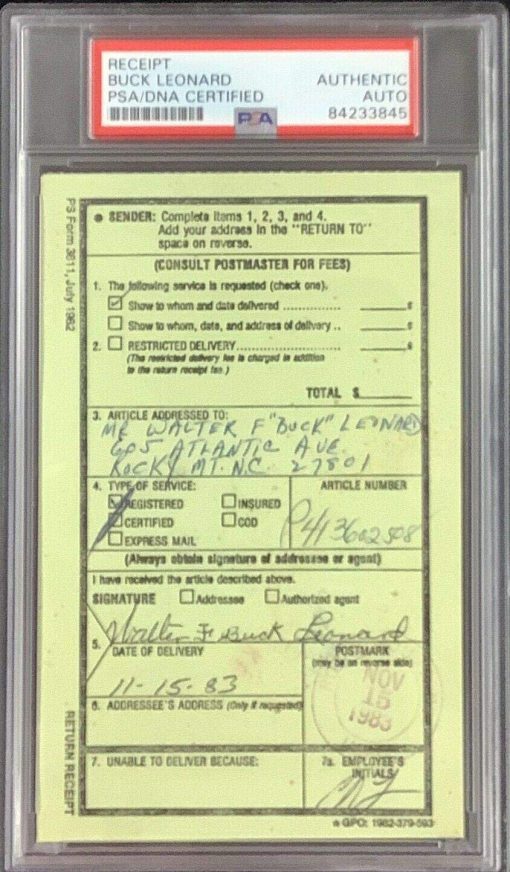 RECEIPT
BUCK LEONARD AUTHENTIC
PSA/DNA CERTIFIED AUTO
PSA 84233845
PS Form 3811, July 1982
● SENDER: Complete items 1, 2, 3, and 4.
Add your address in the "RETURN TO"
space on reverse.
(CONSULT POSTMASTER FOR FEES)
1. The following service is requested (check one).
Show to whom and date delivered .............. ____¢
Show to whom, date, and address of delivery .. ____¢
2. RESTRICTED DELIVERY...................... ____¢
(The restricted delivery fee is charged in addition
to the return receipt fee.)
TOTAL $____
3. ARTICLE ADDRESSED TO:
MR WALTER F "BUCK" LEONARD
605 ATLANTIC AVE
ROCKY MT. N.C. 27801
4. TYPE OF SERVICE: ARTICLE NUMBER
REGISTERED INSURED
CERTIFIED COD P413602508
EXPRESS MAIL
(Always obtain signature of addressee or agent)
I have received the article described above.
SIGNATURE Addressee Authorized agent
Walter F Buck Leonard
5. DATE OF DELIVERY POSTMARK
(may be on reverse side)
11-15-83
NOV
15
1983
6. ADDRESSEE'S ADDRESS (Only if requested)
7. UNABLE TO DELIVER BECAUSE: 7a. EMPLOYEE'S
INITIALS
RETURN RECEIPT
★ GPO: 1982-379-593